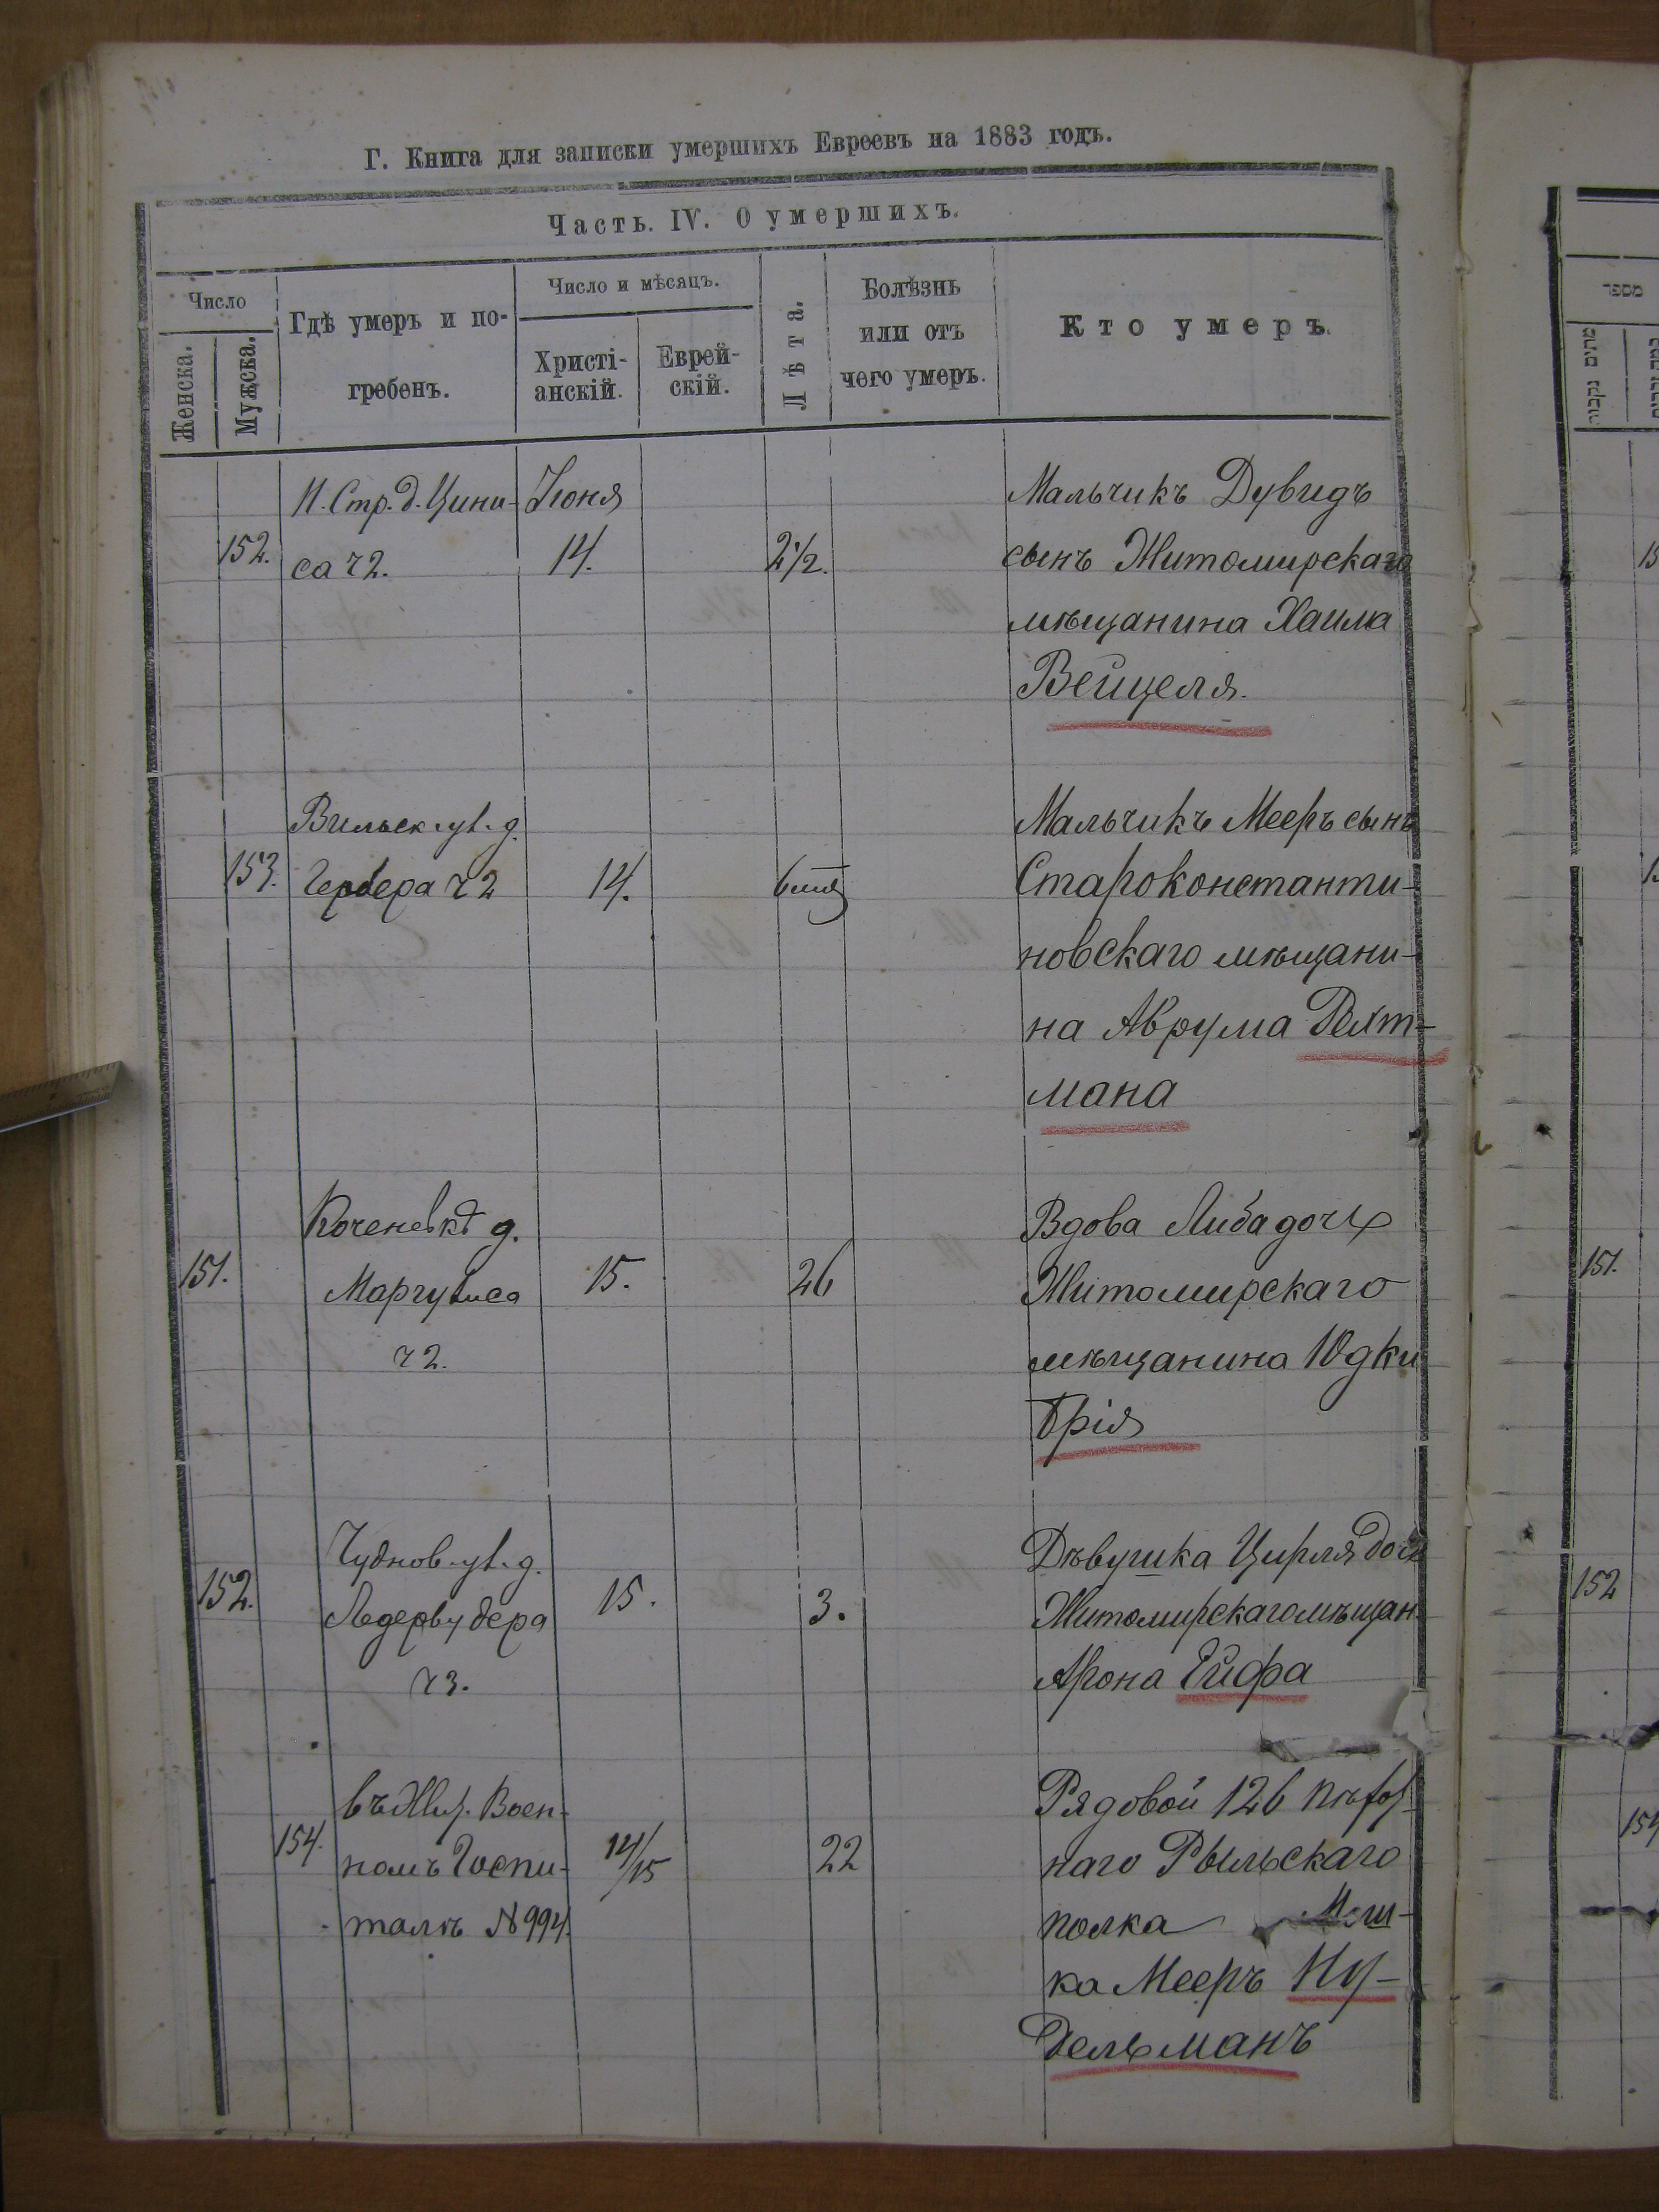 Г. Книга для записки умершихъ Евреевъ на 1883 годъ.
Часть. IV. О умершихъ.
Число
Женска.
Мужска.
Гдѣ умеръ и по-
гребенъ.
Число и мѣсяцъ.
Христі-
анскій.
Еврей-
скій.
Лѣта.
Болѣзнь
или отъ
чего умеръ.
Кто умеръ.
И. Стр. д. Цини-
са ч 2.
152.
Іюня
14.
2 1/2.
Мальчикъ Дувидъ
сынъ Житомирскаго
мѣщанина Хаима
Вейцеля.
Вильск. ул. д.
Гербера ч 2
153.
14.
6
Мальчикъ Мееръ сынъ
Староконстанти-
новскаго мѣщани-
на Аврума Рехт-
мана
Коченевкѣ д.
Маргулиса
ч 2.
151.
15.
26
Вдова Либа дочь
Житомирскаго
мѣщанина Юдки
Брія
Чуднов. ул. д.
Ледервудера
ч 3.
152.
15.
3.
Дѣвушка Цирля дочь
Житомирскаго мѣщан.
Арона Ейфа
въ Жит. Воен-
номъ Госпи-
талѣ № 994.
154.
14/15
22
Рядовой 126 пѣхот-
наго Рыльскаго
полка Мош-
ка Мееръ Ну-
дельманъ
מספר
151.
152
154